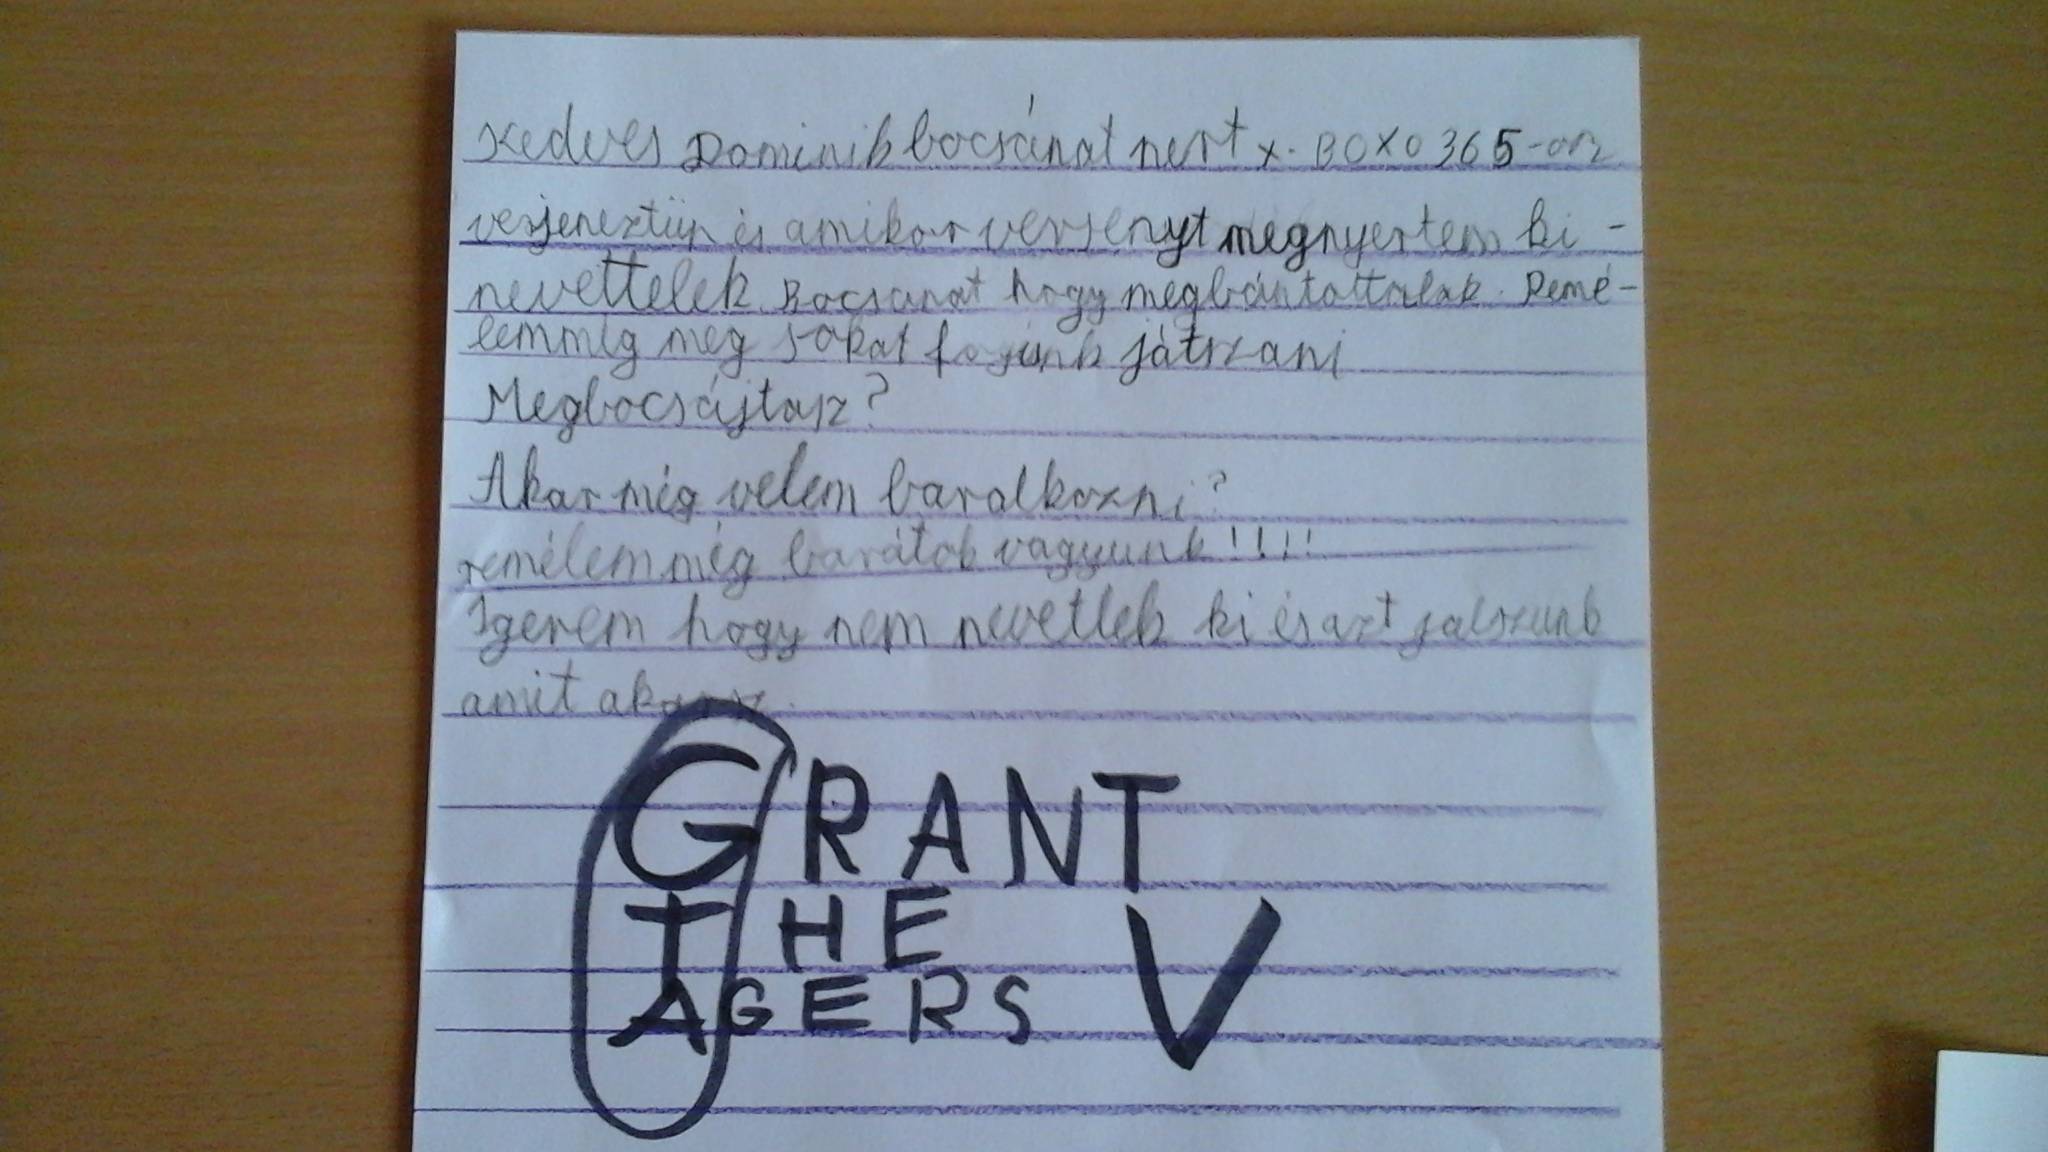 Kedves Dominik bocsánat mert x. BOXO 365-on
versjeneztün és amikor versenyt megnyertem ki -
nevettelek. Bocsanat hogy megbántottalak. Remé-
lemmég meg sokat fogunk játszani
Megbocsájtasz?
Akar még velem baralkozni?
remélem még barátok vagyunk!!!!!
Igerem hogy nem nevetlek ki és azt jalszunk
amit akarsz.
GRANT
THE
AGERS V